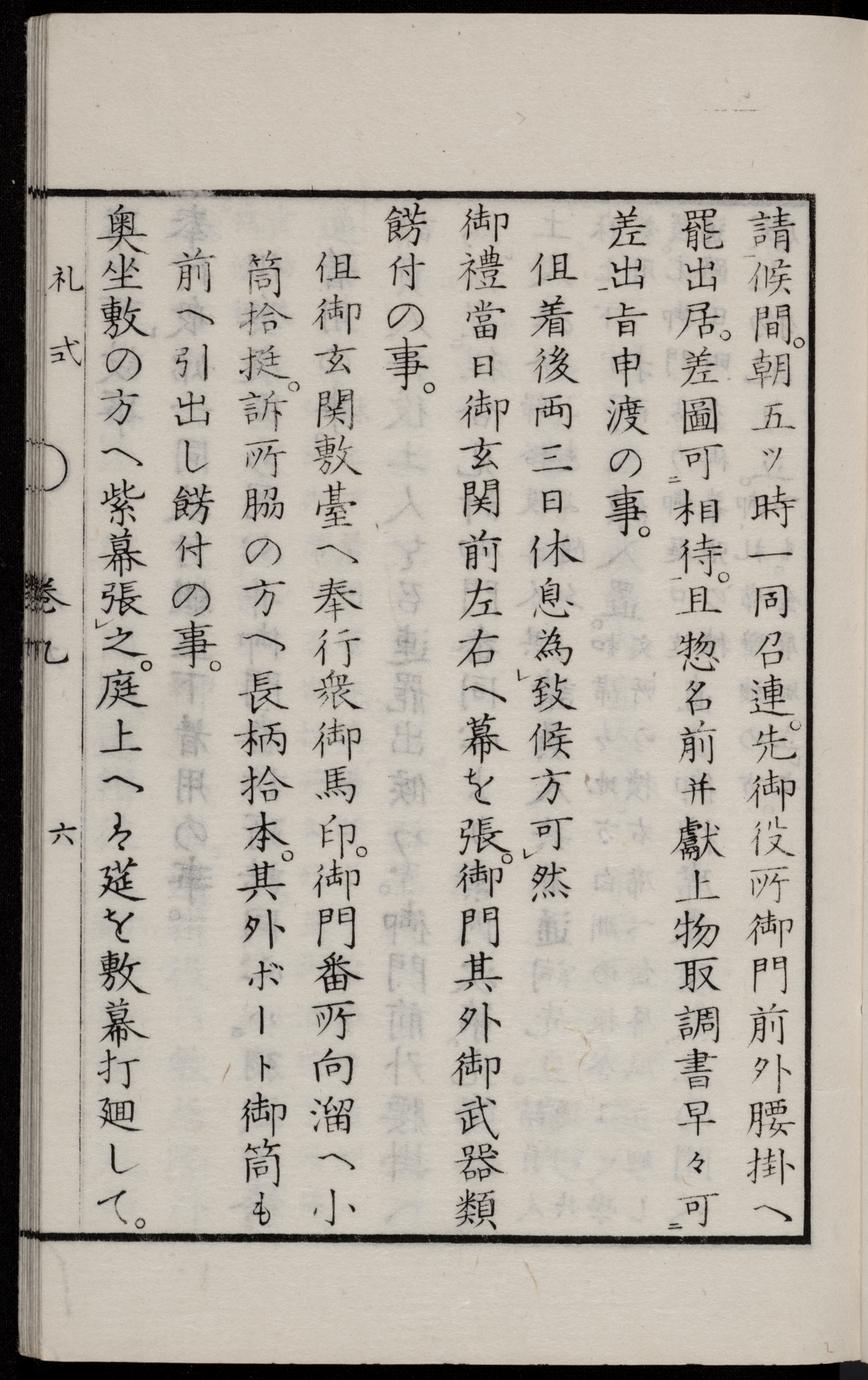 請候間。朝五ツ時一同召連。先御役所御門前外腰掛へ
罷出居。差圖可ニ相待一。且惣名前并獻上物取調書早々可ニ
差出一旨申渡の事。
伹着後両三日休息為レ致候方可レ然
御禮當日御玄関前左右へ幕を張。御門其外御武器類
餝付の事。
伹御玄関敷臺へ奉行衆御馬印。御門番所向溜へ小
筒拾挺。訴所脇の方へ長柄拾本。其外ボート御筒も
前へ引出し餝付の事。
奥坐敷の方へ紫幕張レ之。庭上へは莚を敷幕打廻して。
礼式 巻九 六